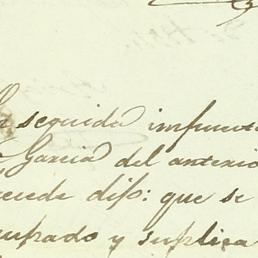 seguida impuesto
Garcia del anterio
cede dijo: que se
y suplica